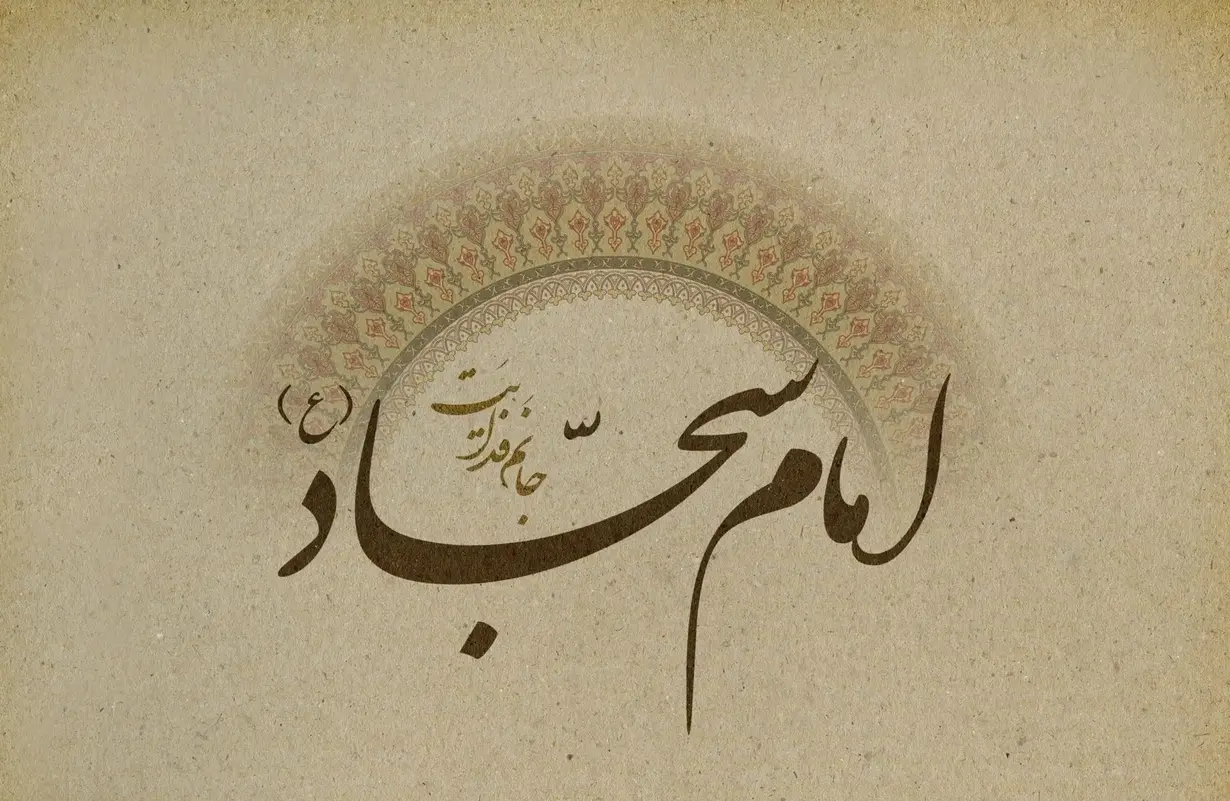 امام سجّاد (ع)
جانَم فدایَت